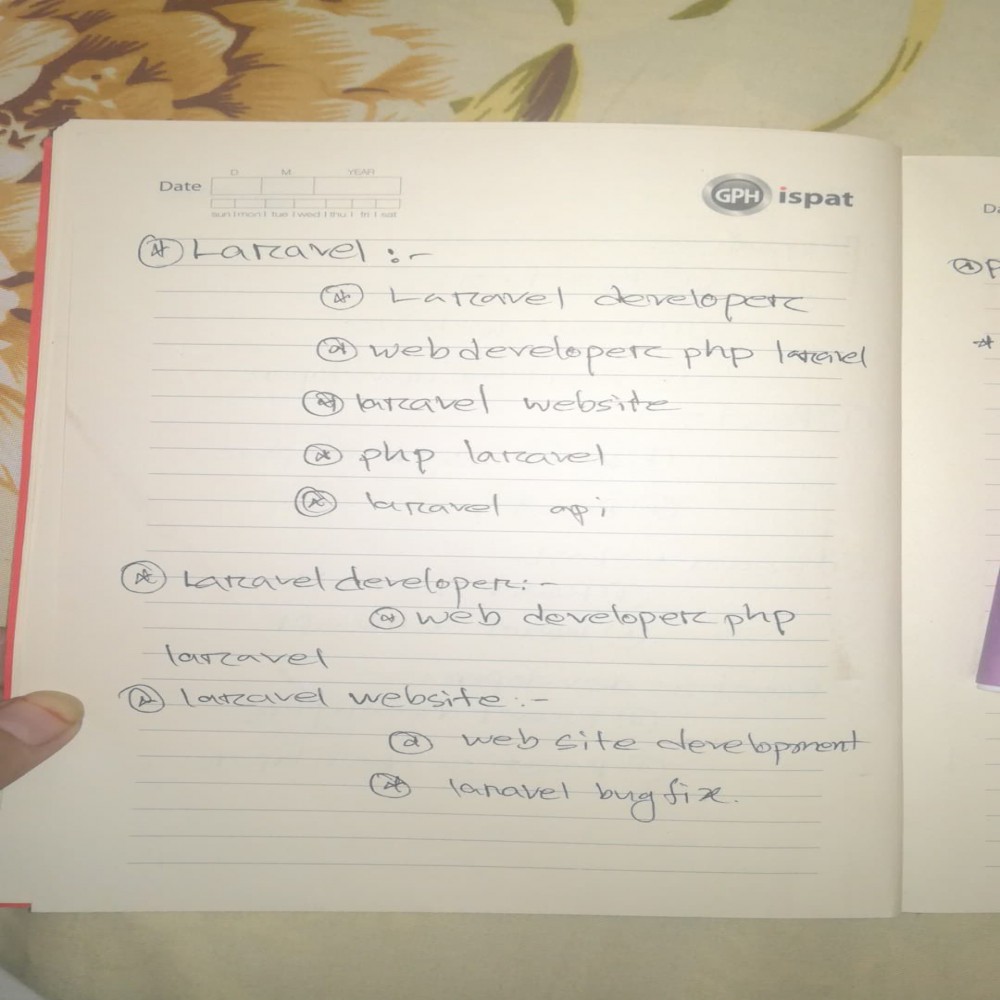 D M YEAR
Date
sun mon tue wed thu fri sat
GPH ispat
Laravel :-
Laravel developer
web developer php laravel
laravel website
php laravel
laravel api
Laravel developer:-
web developer php
laravel
laravel website :-
web site development
laravel bug fix.